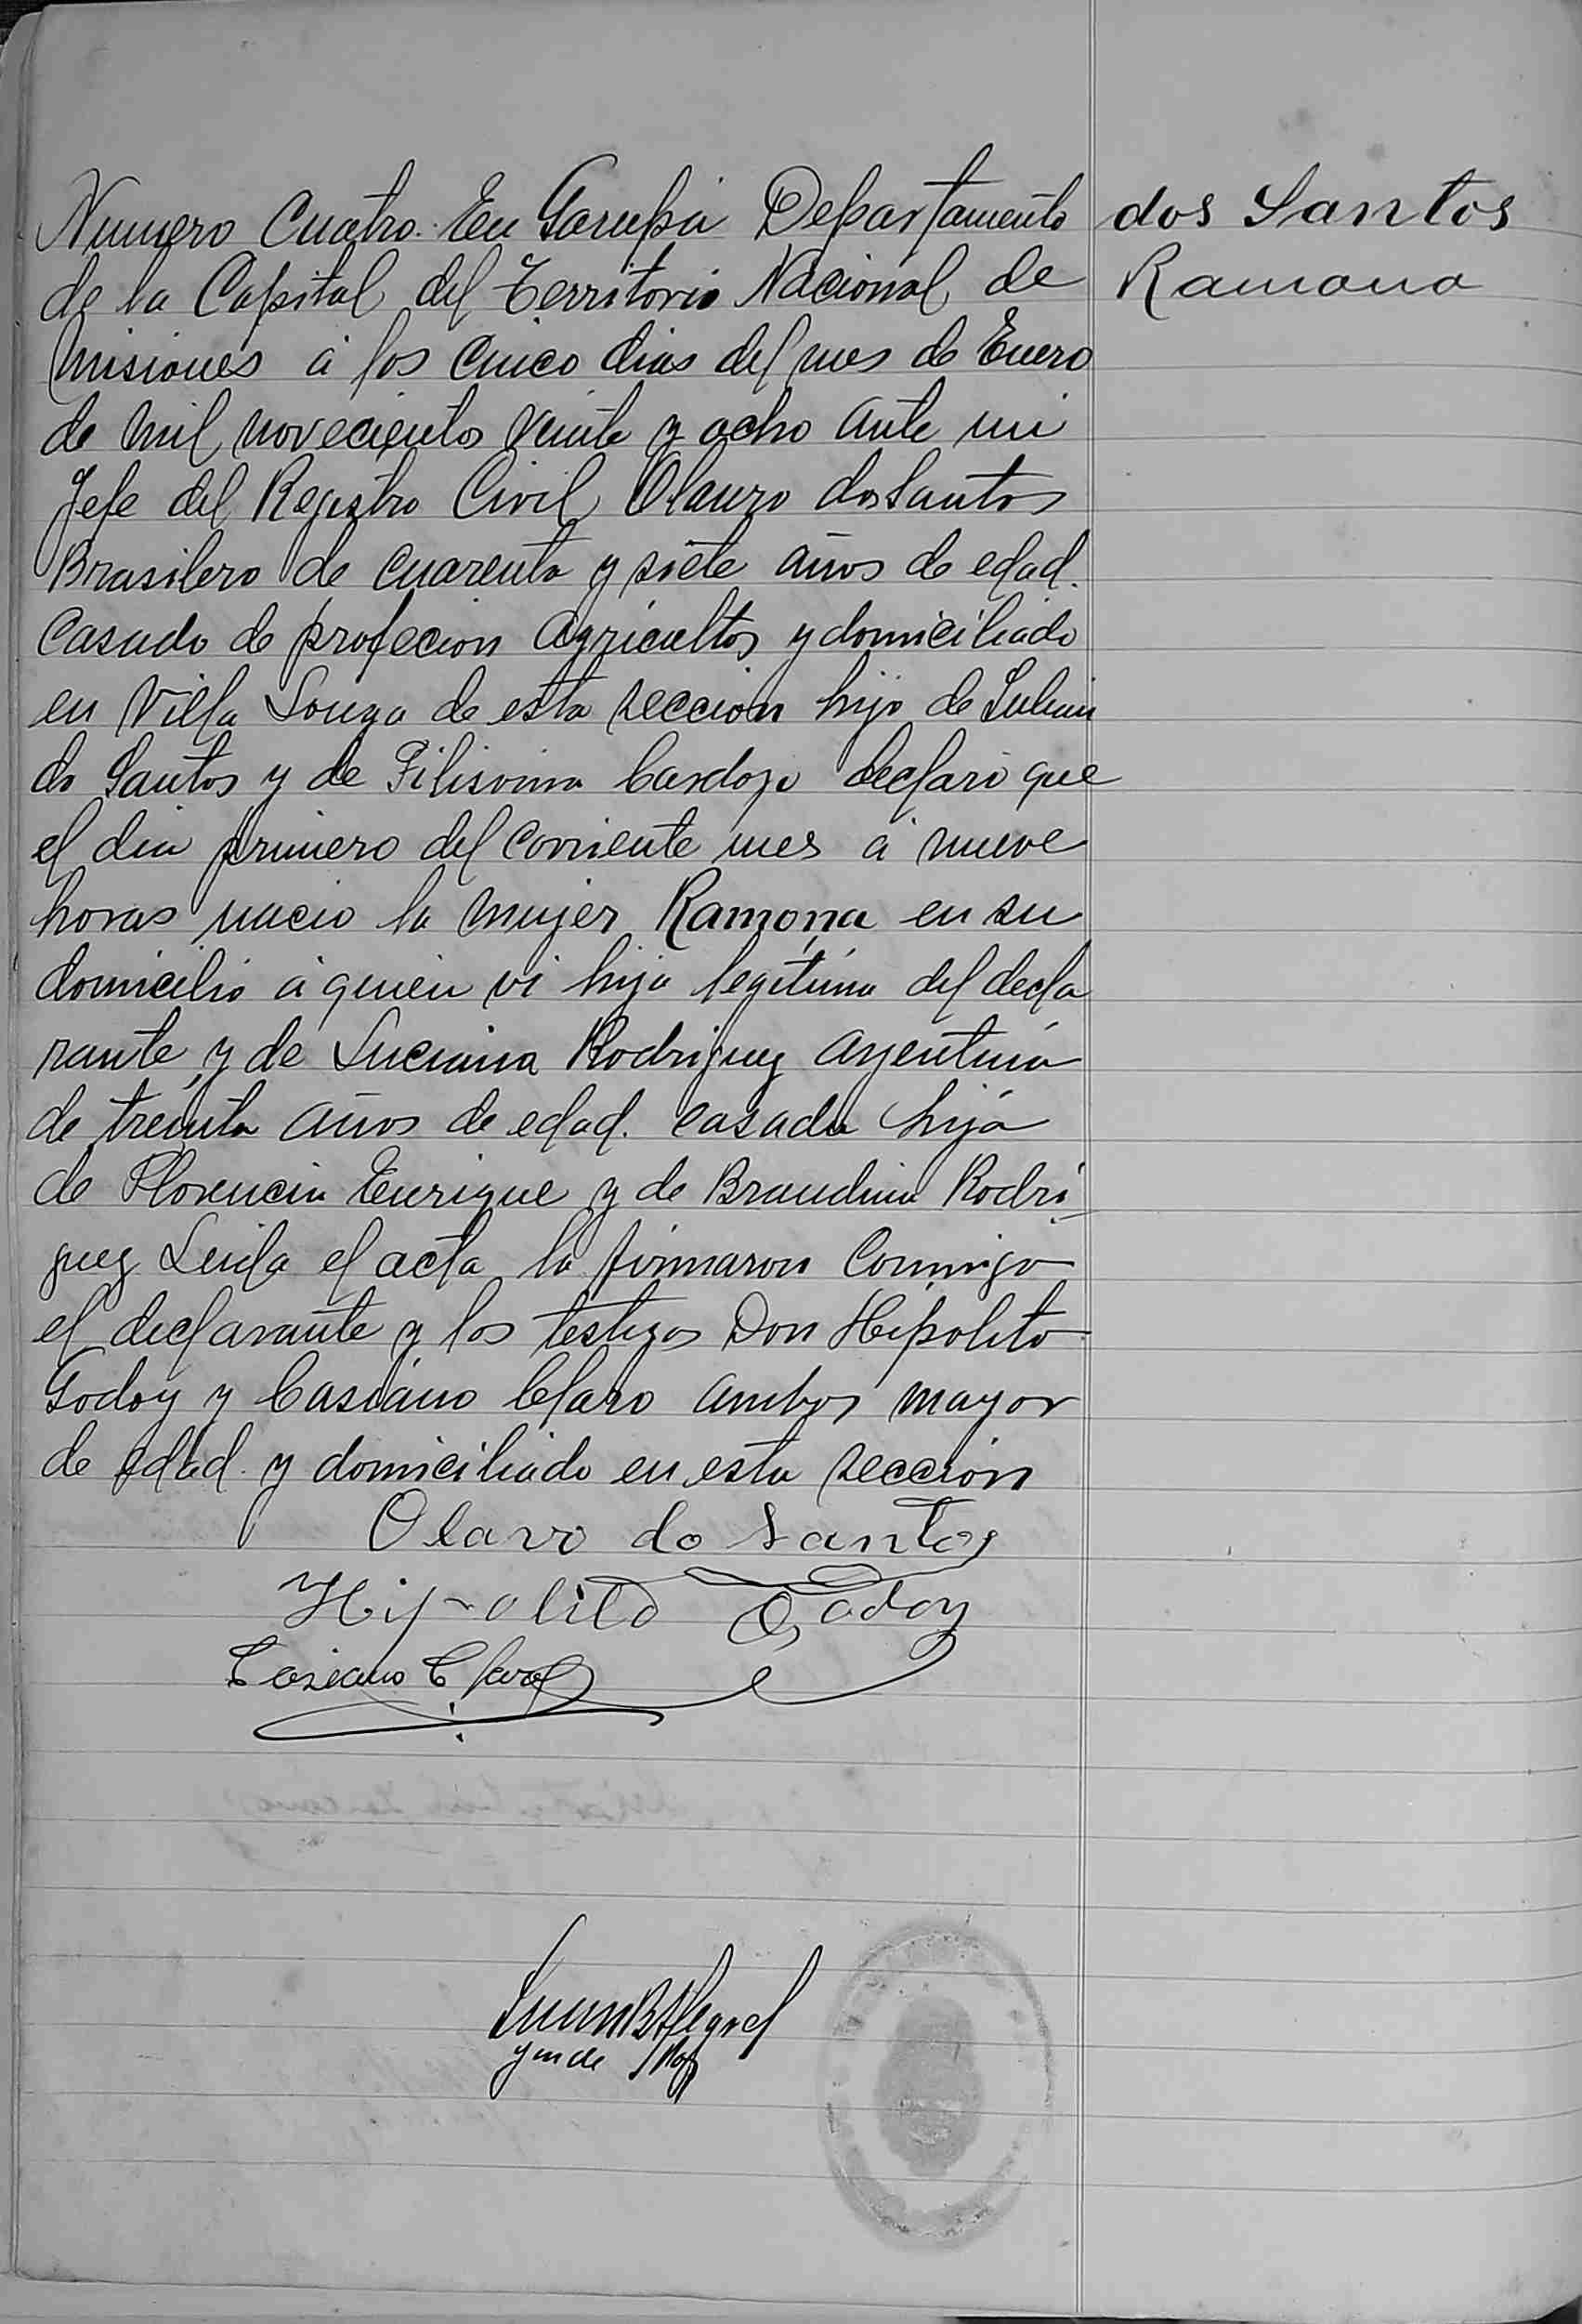 Numero Cuatro. En Garupá Departamento
dos Santos
Ramona
de la Capital del Territorio Nacional de
Misiones á los cinco dias del mes de Enero
de mil novecientos veinte y ocho ante mi
Jefe del Registro Civil Olauro dos Santos
Brasilero de cuarenta y siete años de edad.
Casado de profecion agricultor y domiciliado
en Villa Souza de esta seccion hijo de
do Santos y de Cardozo declaró que
el dia primero del corriente mes á nueve
horas nacio la mujer Ramona en su
domicilio á quien vi hija legitima del decla
rante y de Luciana Rodriguez argentina
de treinta años de edad. casada hija
de Florencin Enrique y de Braudina Rodri
guez Leida el acta la firmaron conmigo
el declarante y los testigos Don Hipolito
Godoy y Casiano Claro ambos mayor
de edad y domiciliado en esta seccion
Olavo do Santos
Hipolito Godoy
Casiano Claro